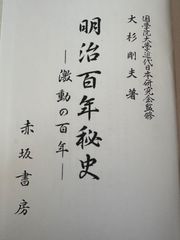 国学院大学近代日本研究会監修
大杉剛夫著
明治百年秘史
―激動の百年―
赤坂書房